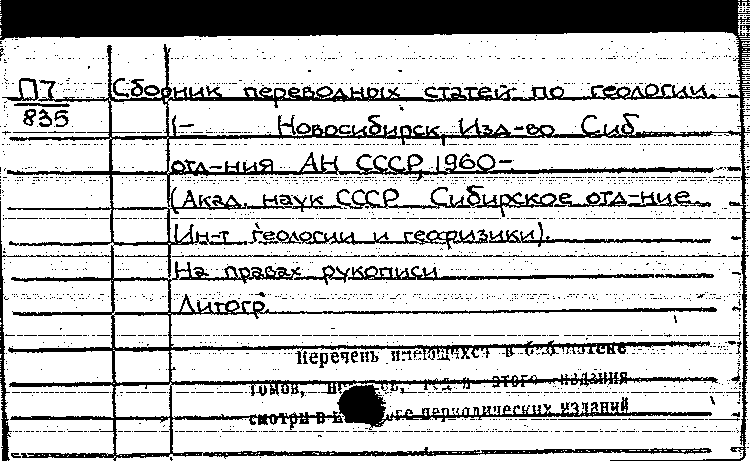 П7 Сборник переводных статей по геологии.
835 1- Новосибирск, Изд-во Сиб.
отд-ния АН СССР, 1960-
(Акад. наук СССР Сибирское отд-ние
Ин-т геологии и геофизики).
На правах рукописи
Литогр.
Перечень имеющихся в библиотеке
томов, этого издания
смотри в периодических изданий